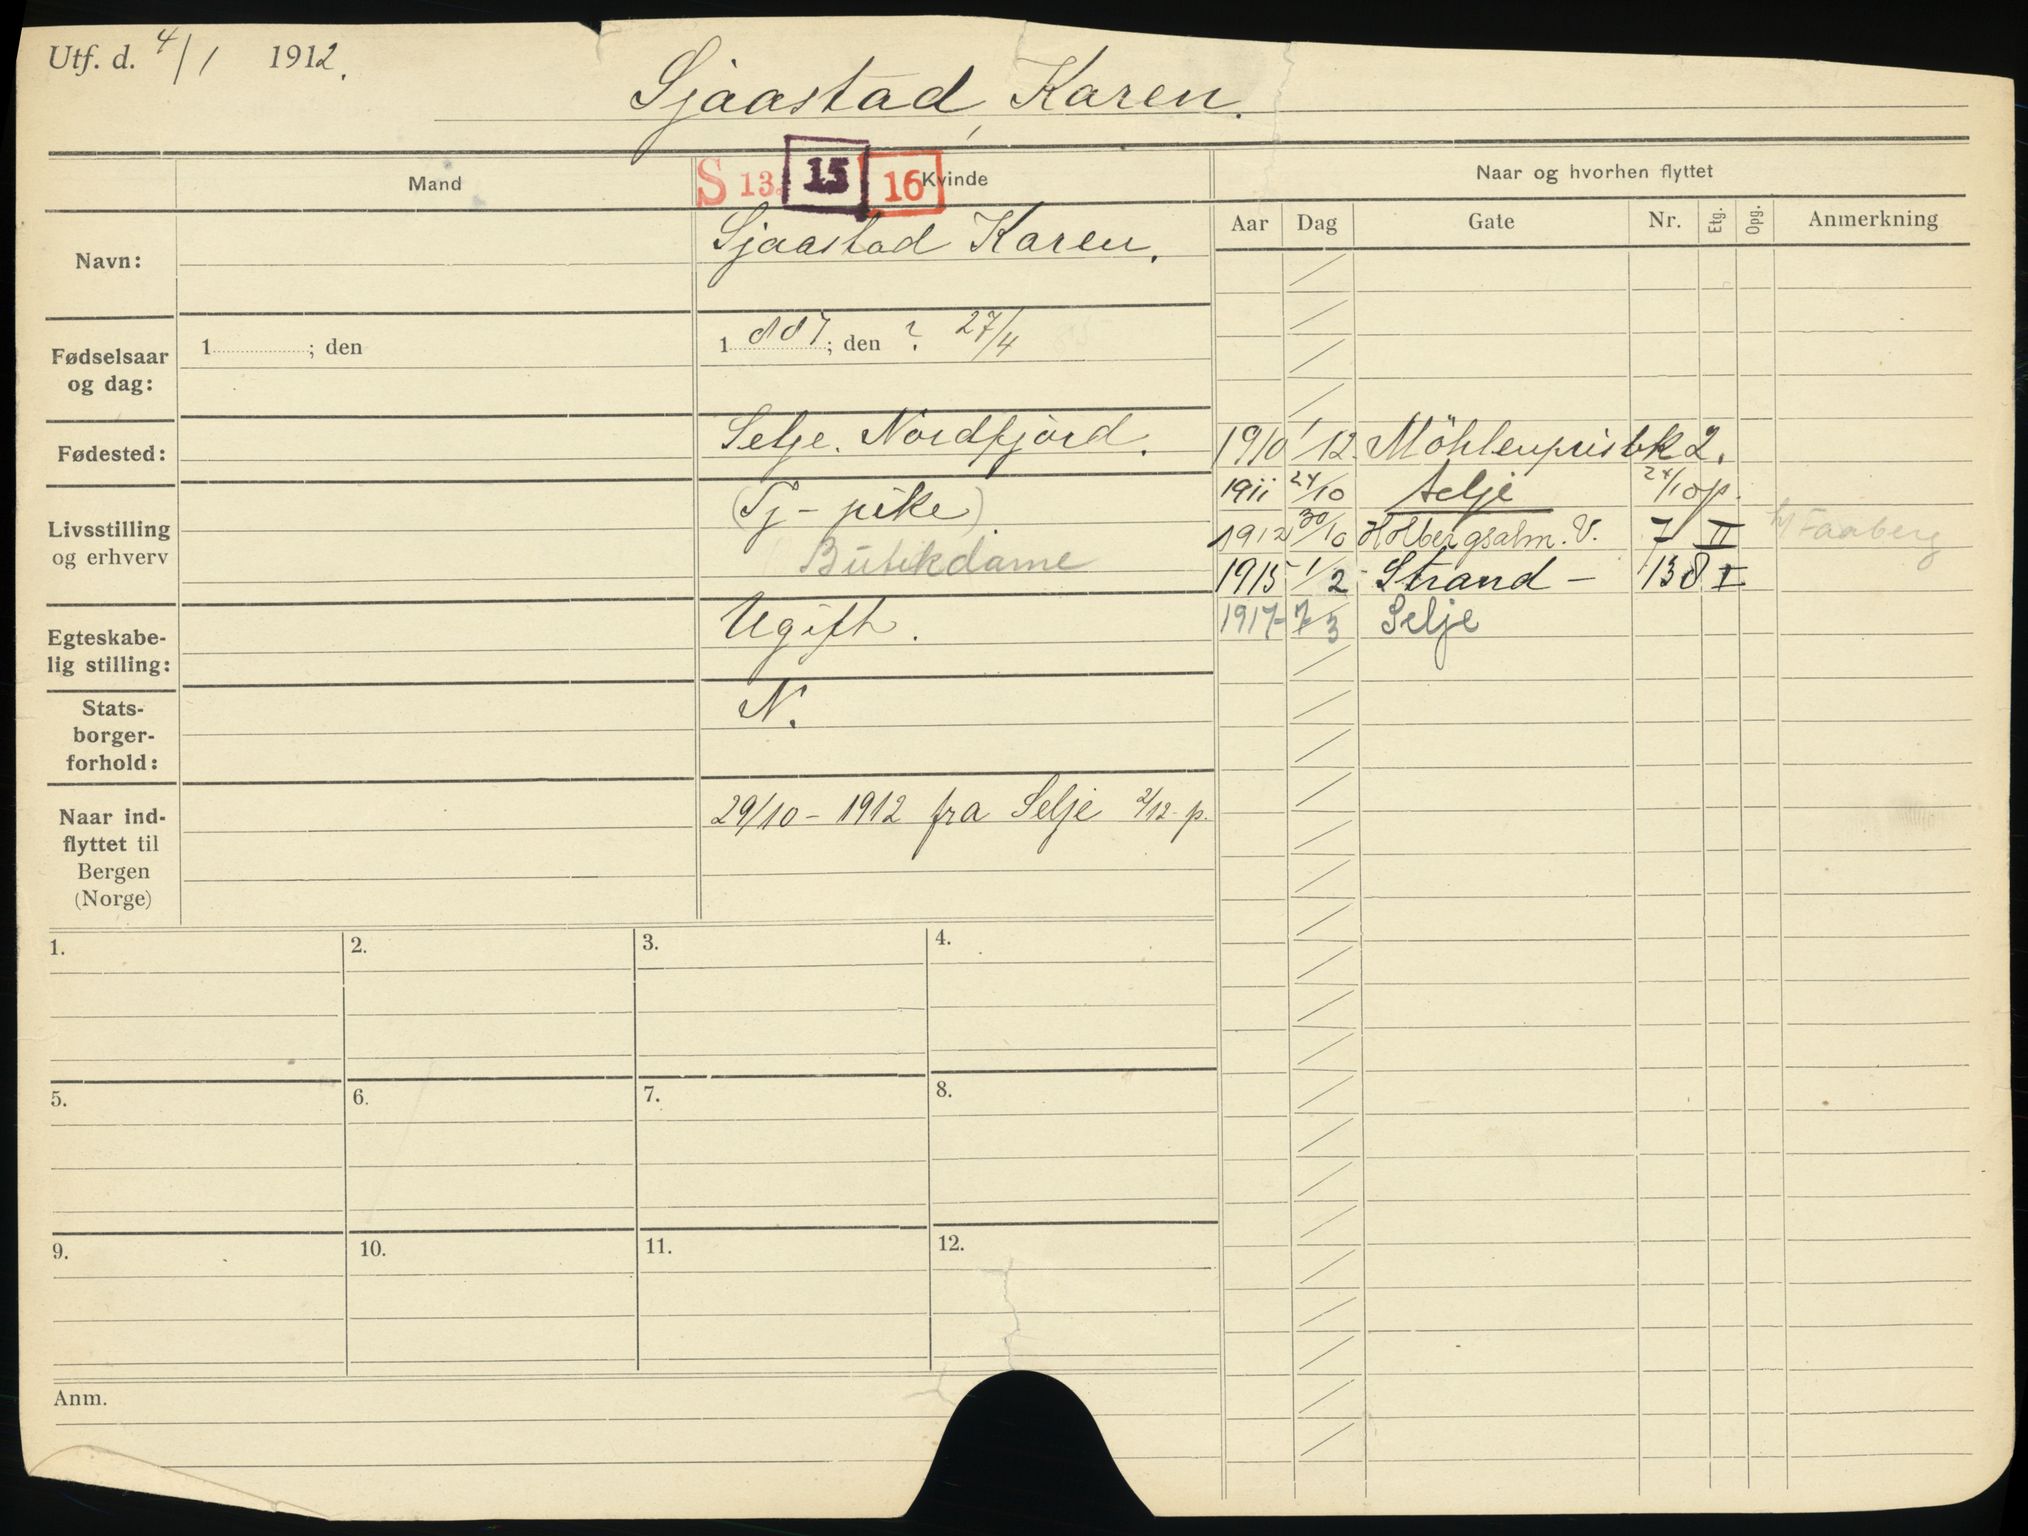 Utf. d. 4/1 1912.
Sjaastad, Karen.
Mand
S 13. 15 16
Kvinde
Naar og hvorhen flyttet
Aar Dag Gate Nr. Etg. Opg. Anmerkning
Navn:
Sjaastad Karen.
Fødselsaar
og dag:
1 ; den
1 887; den ? 27/4
Fødested:
Selje. Nordfjord.
Livsstilling
og erhverv
(Tj-pike)
Butikdame
Egteskabe-
lig stilling:
Ugift.
Stats-
borger-
forhold:
N.
Naar ind-
flyttet til
Bergen
(Norge)
29/10 - 1912 fra Selje 2/12 p.
1910 1/12 Möhlenprisbk 2.
1911 24/10 Selje 24/10 p.
1912 30/10 Holbergsalm. V. 7 II h/ Faaberg
1915 1/2 Strand - 138 I
1917 7/3 Selje
1.
2.
3.
4.
5.
6.
7.
8.
9.
10.
11.
12.
Anm.